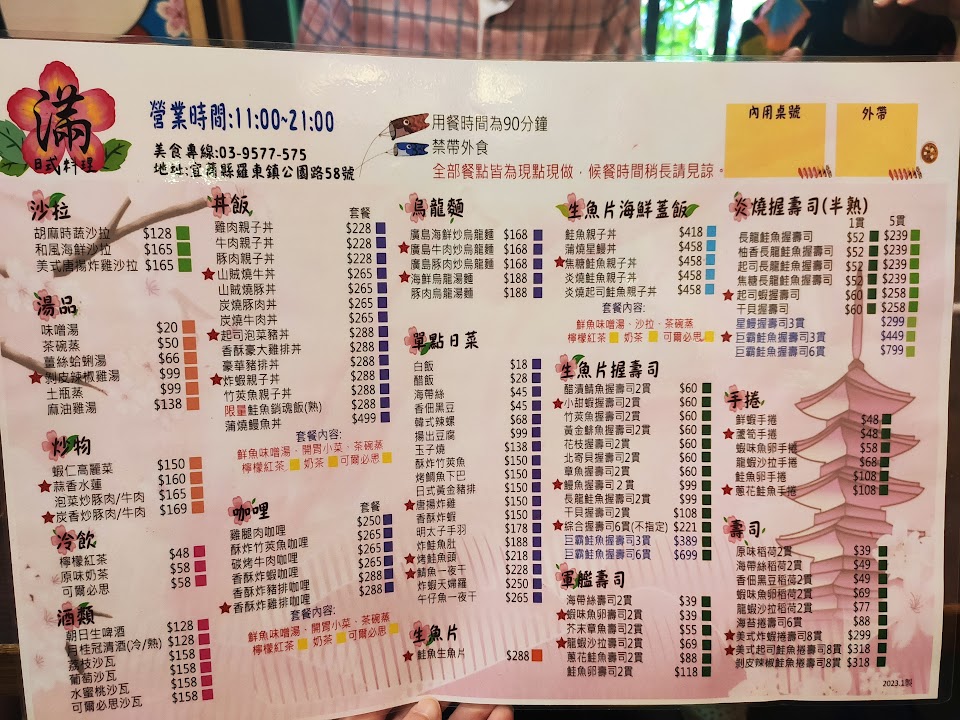 滿
日式料理
營業時間:11:00~21:00
美食專線:03-9577-575
地址:宜蘭縣羅東鎮公園路58號
用餐時間為90分鐘
禁帶外食
全部餐點皆為現點現做，候餐時間稍長請見諒。
內用桌號
外帶
沙拉
胡麻時蔬沙拉 $128
和風海鮮沙拉 $165
美式唐楊炸雞沙拉 $165
湯品
味噌湯 $20
茶碗蒸 $50
薑絲蛤蜊湯 $66
剝皮辣椒雞湯 $99
土瓶蒸 $99
麻油雞湯 $138
炒物
蝦仁高麗菜 $150
蒜香水蓮 $160
泡菜炒豚肉/牛肉 $165
炭香炒豚肉/牛肉 $169
冷飲
檸檬紅茶 $48
原味奶茶 $58
可爾必思 $58
酒類
朝日生啤酒 $128
月桂冠清酒(冷/熱) $128
荔枝沙瓦 $158
葡萄沙瓦 $158
水蜜桃沙瓦 $158
可爾必思沙瓦 $158
丼飯 套餐
雞肉親子丼 $228
牛肉親子丼 $228
豚肉親子丼 $228
山賊燒牛丼 $265
山賊燒豚丼 $265
炭燒豚肉丼 $265
炭燒牛肉丼 $265
起司泡菜豬丼 $288
香酥豪大雞排丼 $288
豪華豬排丼 $288
炸蝦親子丼 $288
竹莢魚親子丼 $288
限量鮭魚銷魂飯(熟) $288
蒲燒鰻魚丼 $499
套餐內容:
鮮魚味噌湯、開胃小菜、茶碗蒸
檸檬紅茶 奶茶 可爾必思
咖哩 套餐
雞腿肉咖哩 $250
酥炸竹莢魚咖哩 $265
碳烤牛肉咖哩 $265
香酥炸蝦咖哩 $265
香酥炸豬排咖哩 $288
香酥炸雞排咖哩 $288
套餐內容:
鮮魚味噌湯、開胃小菜、茶碗蒸
檸檬紅茶 奶茶 可爾必思
烏龍麵
廣島海鮮炒烏龍麵 $168
廣島牛肉炒烏龍麵 $168
廣島豚肉炒烏龍麵 $168
海鮮烏龍湯麵 $188
豚肉烏龍湯麵 $188
單點日菜
白飯 $18
醋飯 $28
海帶絲 $45
香佃黑豆 $45
韓式辣螺 $68
揚出豆腐 $99
玉子燒 $138
酥炸竹莢魚 $150
烤鯛魚下巴 $150
日式黃金豬排 $150
唐揚炸雞 $150
香酥炸蝦 $150
明太子手羽 $178
炸鮭魚肚 $188
烤鮭魚頭 $218
鯖魚一夜干 $228
炸蝦天婦羅 $250
午仔魚一夜干 $265
生魚片
鮭魚生魚片 $288
生魚片海鮮蓋飯
鮭魚親子丼 $418
蒲燒星鰻丼 $458
焦糖鮭魚親子丼 $458
炎燒鮭魚親子丼 $458
炎燒起司鮭魚親子丼 $458
套餐內容:
鮮魚味噌湯、沙拉、茶碗蒸
檸檬紅茶 奶茶 可爾必思
生魚片握壽司
醋漬鯖魚握壽司2貫 $60
小甜蝦握壽司2貫 $60
竹莢魚握壽司2貫 $60
黃金鯡魚握壽司2貫 $60
花枝握壽司2貫 $60
北寄貝握壽司2貫 $60
章魚握壽司2貫 $60
鰻魚握壽司２貫 $99
長龍鮭魚握壽司2貫 $99
干貝握壽司2貫 $108
綜合握壽司6貫(不指定) $221
巨霸鮭魚握壽司3貫 $389
巨霸鮭魚握壽司6貫 $699
軍艦壽司
海帶絲壽司2貫 $39
蝦味魚卵壽司2貫 $39
芥末章魚壽司2貫 $55
龍蝦沙拉壽司2貫 $69
蔥花鮭魚壽司2貫 $88
鮭魚卵壽司2貫 $118
炎燒握壽司(半熟)
1貫 5貫
長龍鮭魚握壽司 $52 $239
柚香長龍鮭魚握壽司 $52 $239
起司長龍鮭魚握壽司 $52 $239
焦糖長龍鮭魚握壽司 $52 $239
起司蝦握壽司 $60 $258
干貝握壽司 $60 $258
星鰻握壽司3貫 $299
巨霸鮭魚握壽司3貫 $449
巨霸鮭魚握壽司6貫 $799
手捲
鮮蝦手捲 $48
蘆筍手捲 $48
蝦味魚卵手捲 $58
龍蝦沙拉手捲 $68
鮭魚卵手捲 $108
蔥花鮭魚手捲 $108
壽司
原味稻荷2貫 $39
海帶絲稻荷2貫 $49
香佃黑豆稻荷2貫 $49
蝦味魚卵稻荷2貫 $69
龍蝦沙拉稻荷2貫 $77
海苔捲壽司6貫 $88
美式炸蝦捲壽司8貫 $299
美式起司鮭魚捲壽司8貫 $318
剝皮辣椒鮭魚捲壽司8貫 $318
2023.1製